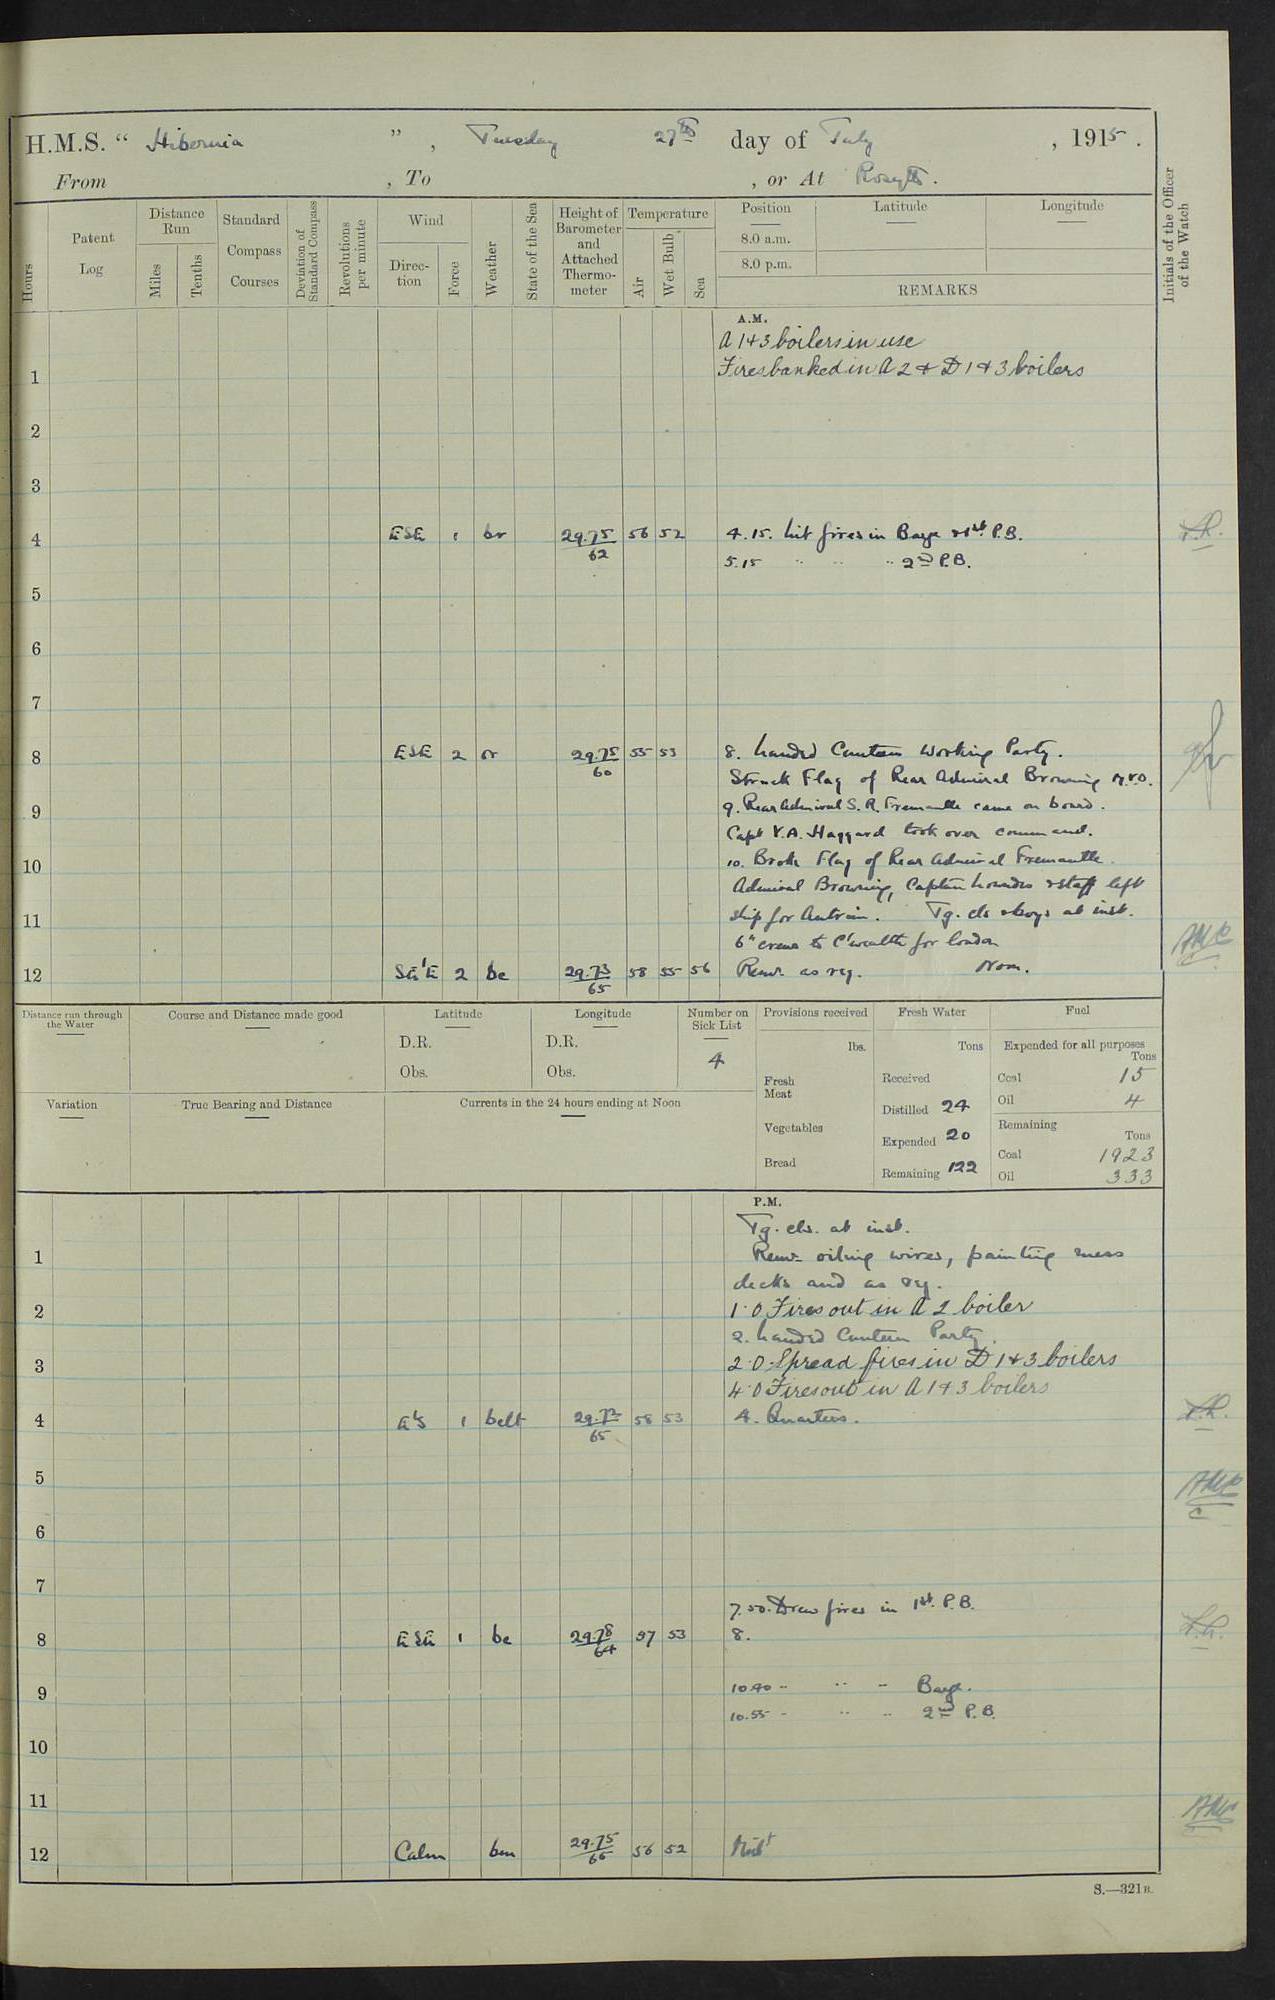 H.M.S. “ Hibernia ”, Tuesday 27th day of July, 1915.
From , To , or At Rosyth.
Hours
Patent Log
Distance Run
Miles
Tenths
Standard Compass Courses
Deviation of Standard Compass
Revolutions per minute
Wind
Direction
Force
Weather
State of the Sea
Height of Barometer and Attached Thermometer
Temperature
Air
Wet Bulb
Sea
Position
8.0 a.m.
8.0 p.m.
Latitude
Longitude
REMARKS
Initials of the Officer of the Watch
A.M.
A 1 & 3 boilers in use
1 Fires banked in A 2 & D 1 & 3 boilers
2
3
4 ESE 1 br 29.75/62 56 52 4.15. Lit fires in Barge & 1st P.B.
5.15 " " " 2nd P.B.
5
6
7
8 ESE 2 or 29.75/60 55 53 8. Landed Canteen Working Party.
Struck Flag of Rear Admiral Browning M.V.O.
9 9. Rear Admiral S. R. Fremantle came on board.
Capt V.A. Haggard took over command.
10 10. Broke Flag of Rear Admiral Fremantle.
Admiral Browning, Captain & staff left
11 ship for Antrim. Tg. cls & boys at inst.
6" crews to C'wealth for London
12 SE'E 2 bc 29.73/65 58 55 56 Remr. as req. Noon.
Distance run through the Water
Course and Distance made good
Latitude
D.R.
Obs.
Longitude
D.R.
Obs.
Number on Sick List
4
Provisions received
lbs.
Fresh Meat
Vegetables
Bread
Fresh Water
Tons
Received
Distilled 24
Expended 20
Remaining 122
Fuel
Expended for all purposes
Tons
Coal 15
Oil 4
Remaining
Tons
Coal 1923
Oil 333
Variation
True Bearing and Distance
Currents in the 24 hours ending at Noon
P.M.
Tg. cls. at inst.
1 Remr. oiling wires, painting mess
decks and as req.
2 1.0 Fires out in A 2 boiler
2. Landed Canteen Party.
3 2.0 Spread fires in D 1 & 3 boilers
4.0 Fires out in A 1 & 3 boilers
4 E'S 1 bclt 29.72/65 58 53 4. Quarters.
5
6
7
7.50. Drew fires in 1st. P.B.
8 ESE 1 bc 29.78/64 57 53 8.
9 10.40 " " " Barge.
10.55 " " " 2nd P.B.
10
11
12 Calm bm 29.75/66 56 52 Midt
S.—321B.